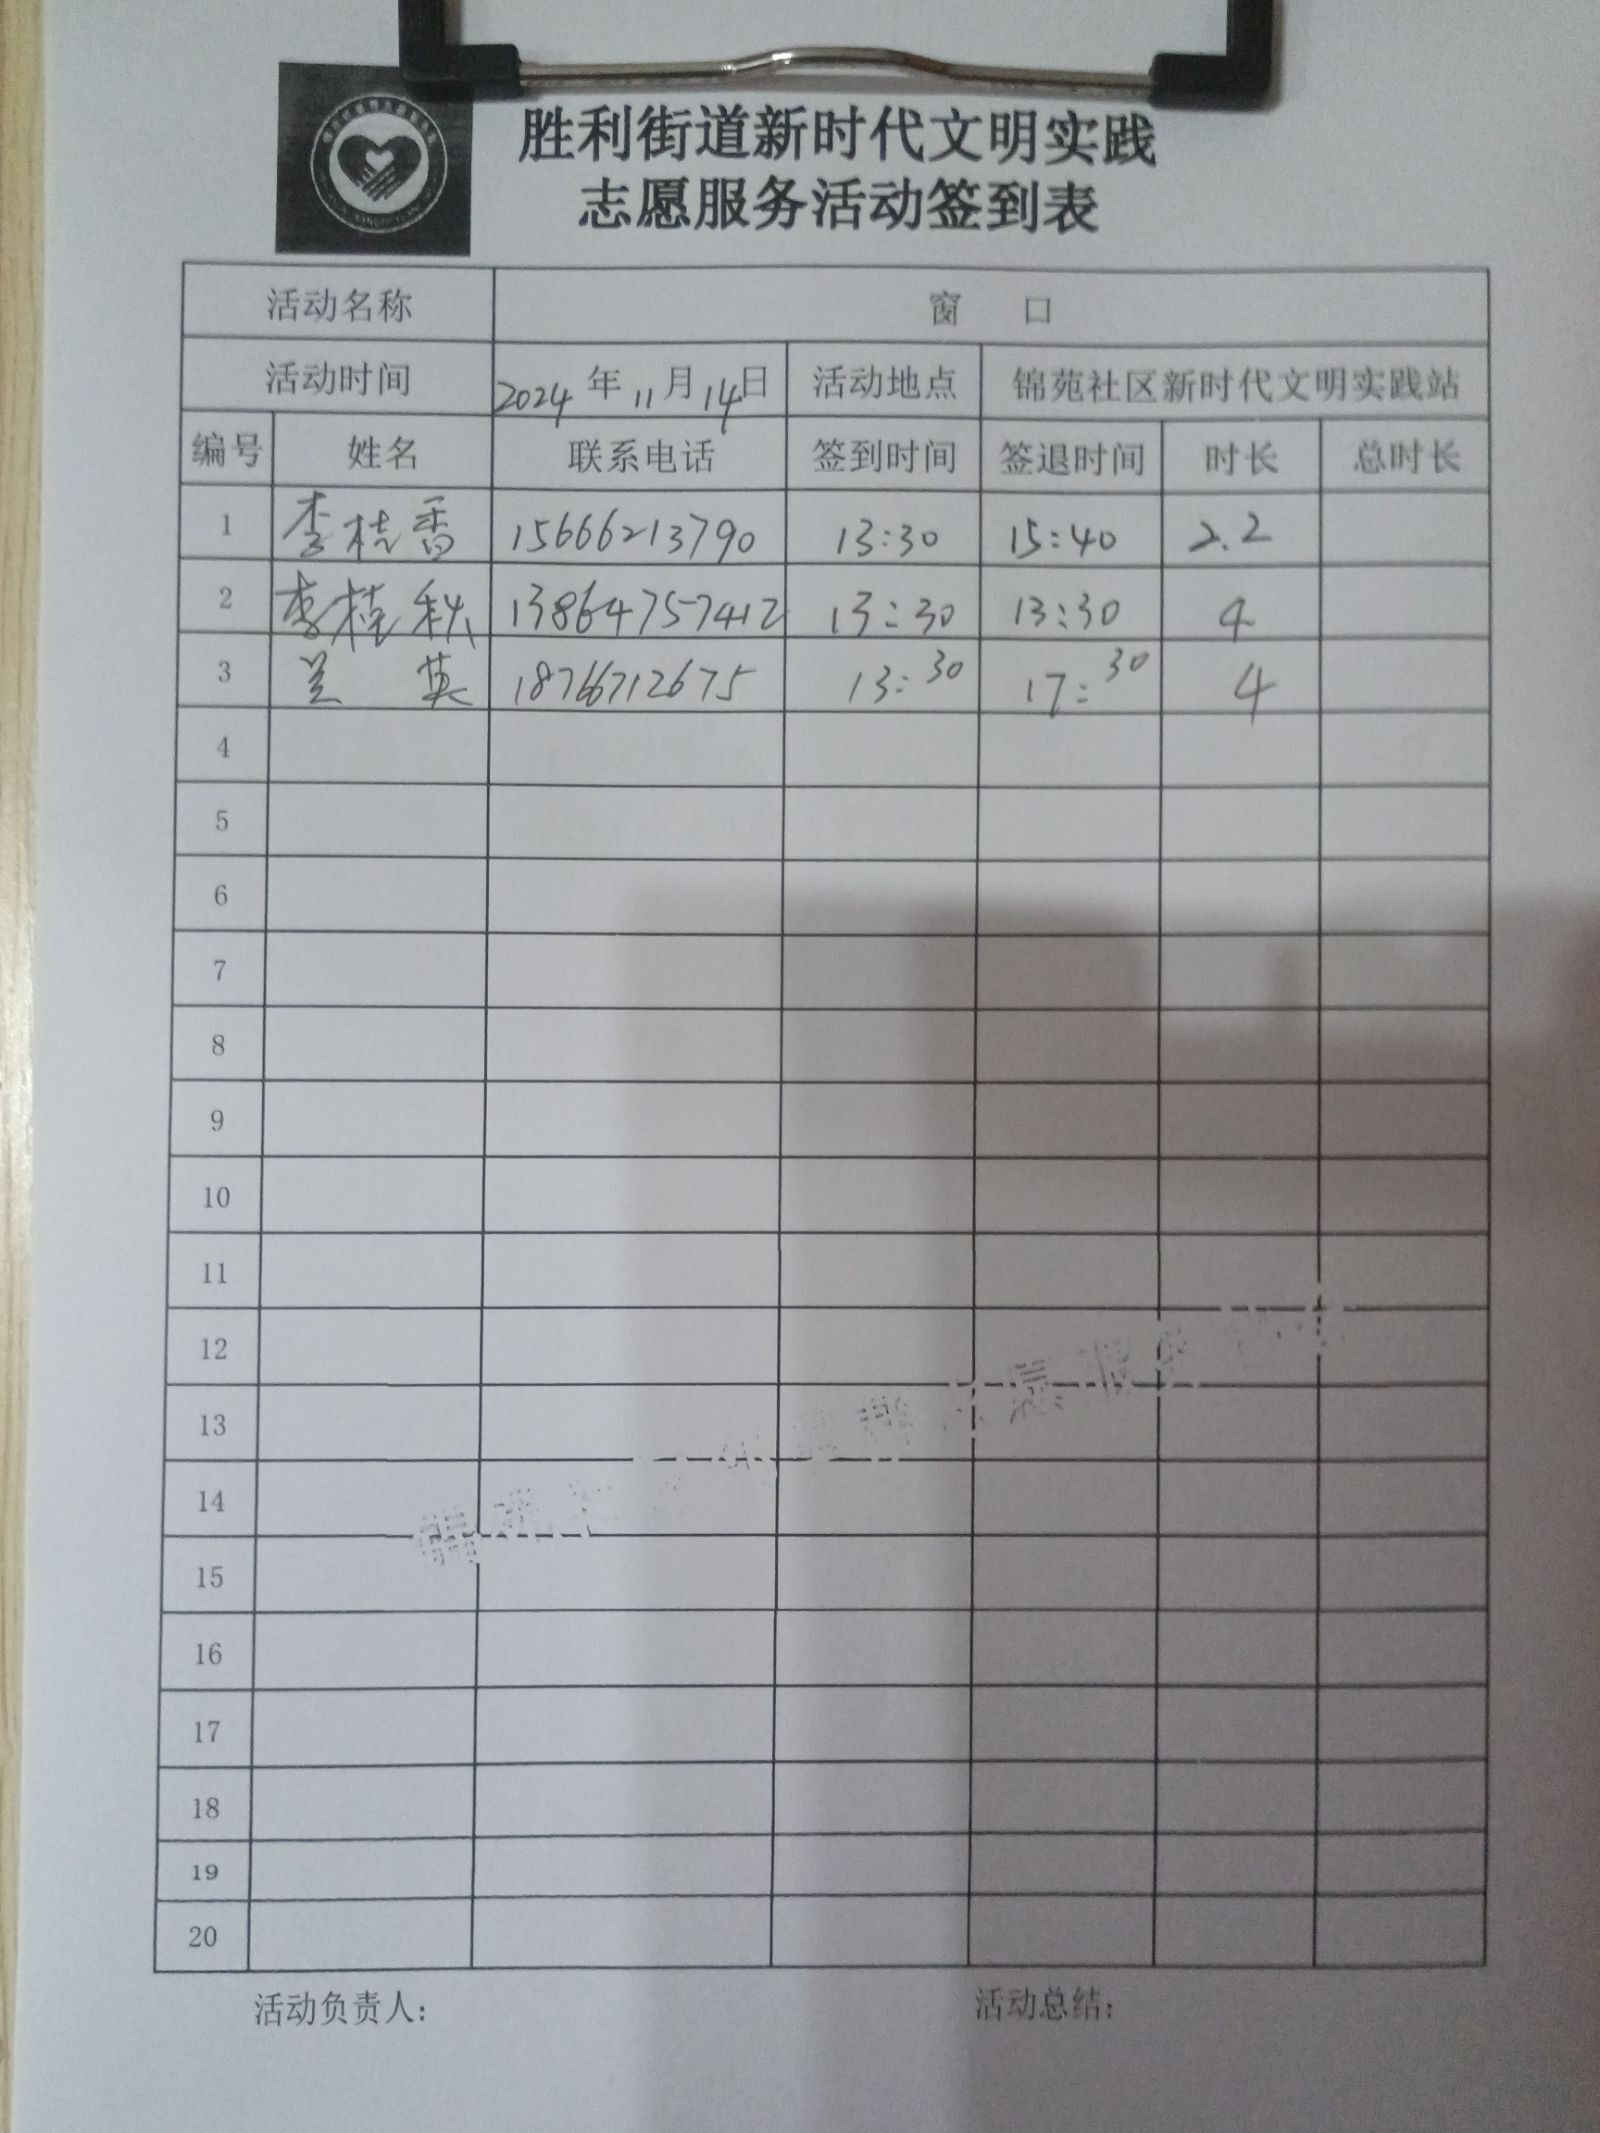 胜利街道新时代文明实践
志愿服务活动签到表
活动名称 窗 口
活动时间 2024年11月14日 活动地点 锦苑社区新时代文明实践站
编号 姓名 联系电话 签到时间 签退时间 时长 总时长
1 李桂香 15666213790 13:30 15:40 2.2
2 李桂秋 13864757412 13:30 13:30 4
3 兰英 18766712675 13:30 17:30 4
4
5
6
7
8
9
10
11
12
13
14
15
16
17
18
19
20
活动负责人: 活动总结: